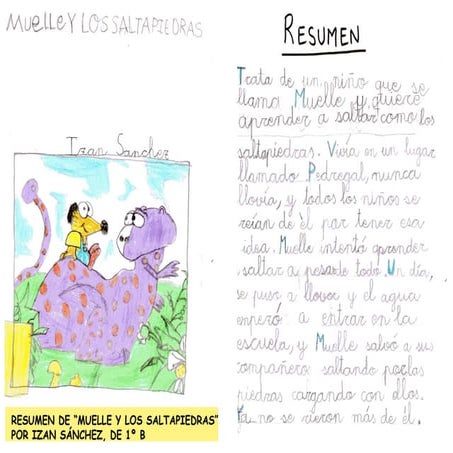 MUELLE Y LOS SALTAPIEDRAS
Izan Sánchez
RESUMEN DE "MUELLE Y LOS SALTAPIEDRAS"
POR IZAN SÁNCHEZ, DE 1º B
RESUMEN
Trata de un niño que se
llama Muelle y quiere
aprender a saltar como los
saltapiedras. Vivía en un lugar
llamado Pedregal, nunca
llovía, y todos los niños se
reían de él por tener esa
idea. Muelle intentó aprender
saltar a pesar de todo. Un día,
se puso a llover y el agua
empezó a entrar en la
escuela, y Muelle salvó a sus
compañeros saltando por las
piedras cargando con ellos.
Ya no se rieron más de él.